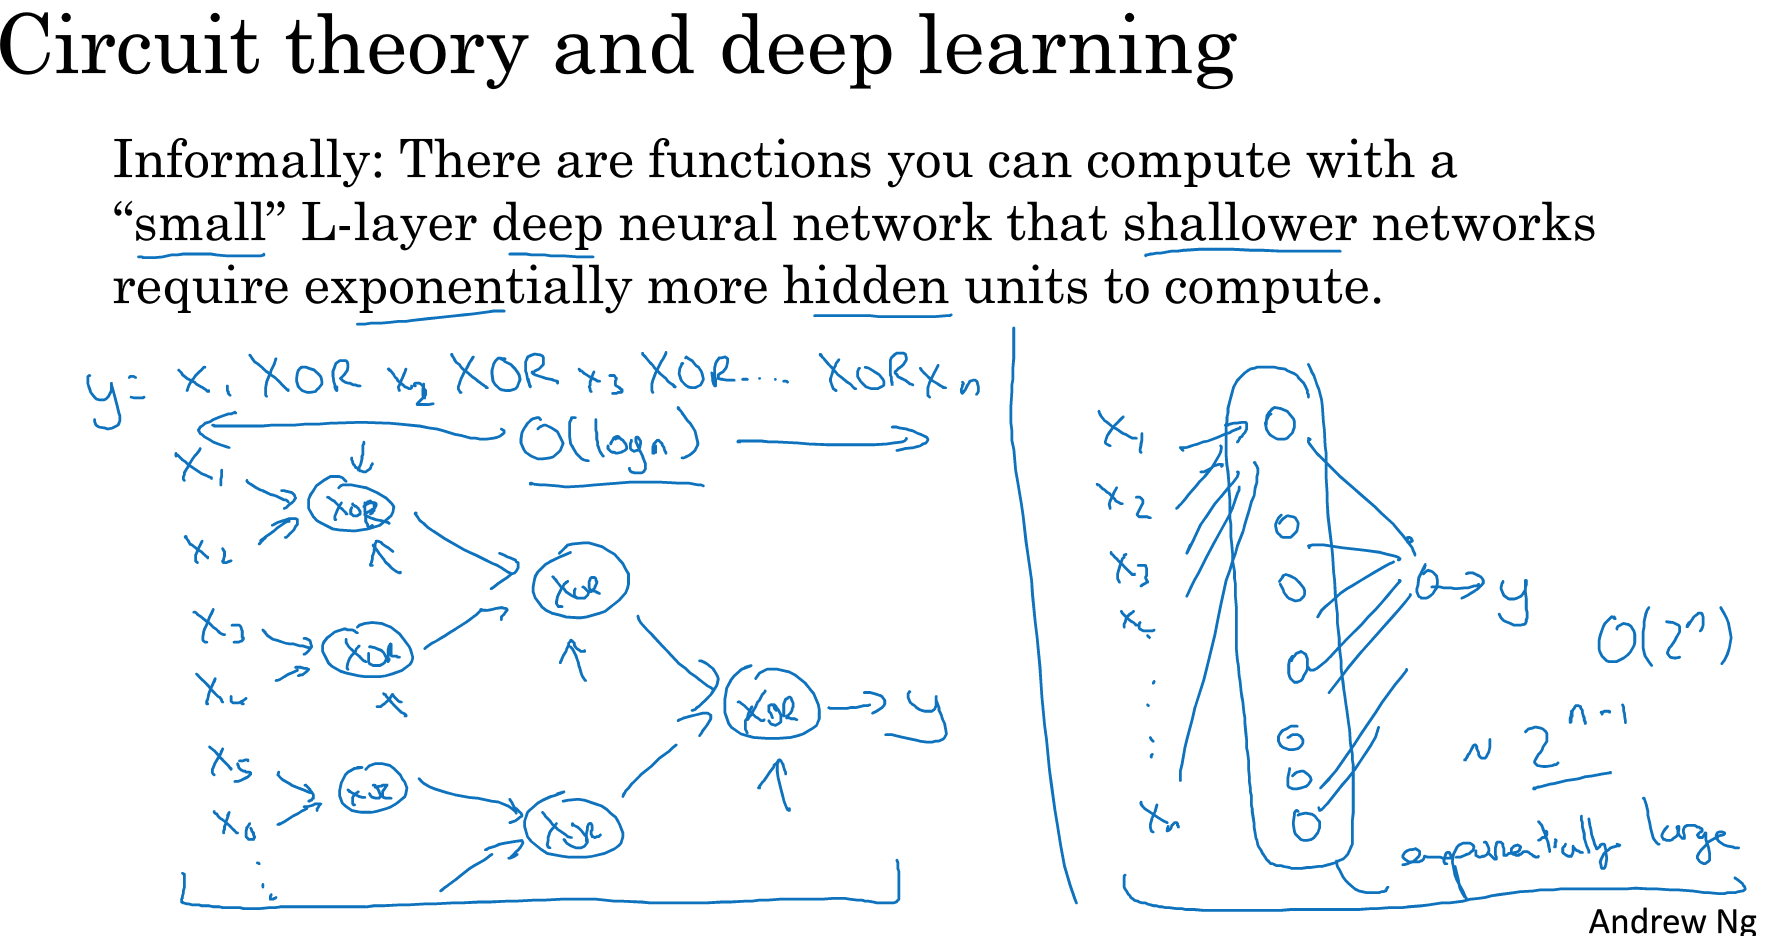 Circuit theory and deep learning
Informally: There are functions you can compute with a
“small” L-layer deep neural network that shallower networks
require exponentially more hidden units to compute.
y= x₁ XOR x₂ XOR x₃ XOR.... XOR xₙ
O(log n)
x₁
XOR
x₂
XOR
x₃
XOR
x₄
XOR
y
x₅
XOR
x₆
XOR
x₁
x₂
x₃
x₄
y
O(2ⁿ)
~ 2ⁿ⁻¹
xₙ
exponentially large
Andrew Ng